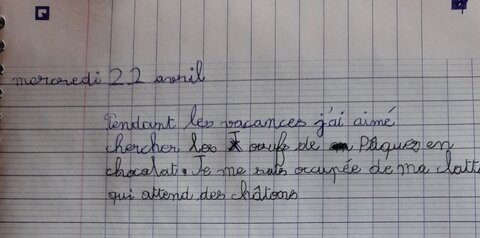 mercredi 22 avril
Pendant les vacances j'ai aimé
chercher les oeufs de Pâques en
chocolat. Je me suis occupée de ma chatte
qui attend des châtons